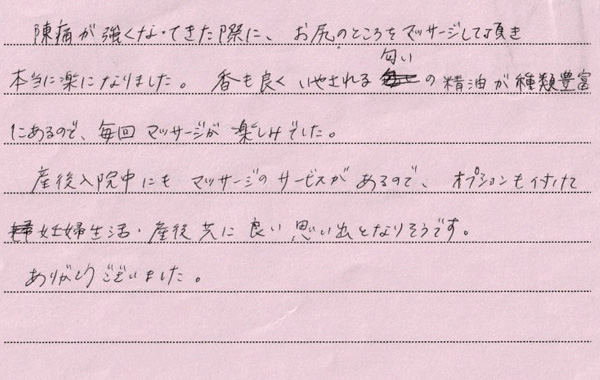 陣痛が強くなってきた際に、お尻のところをマッサージして頂き
本当に楽になりました。香も良くいやされる匂いの精油が種類豊富
にあるので、毎回マッサージが楽しみでした。
産後入院中にもマッサージのサービスがあるので、オプションも付けて
妊婦生活・産後共に良い思い出となりそうです。
ありがとうございました。